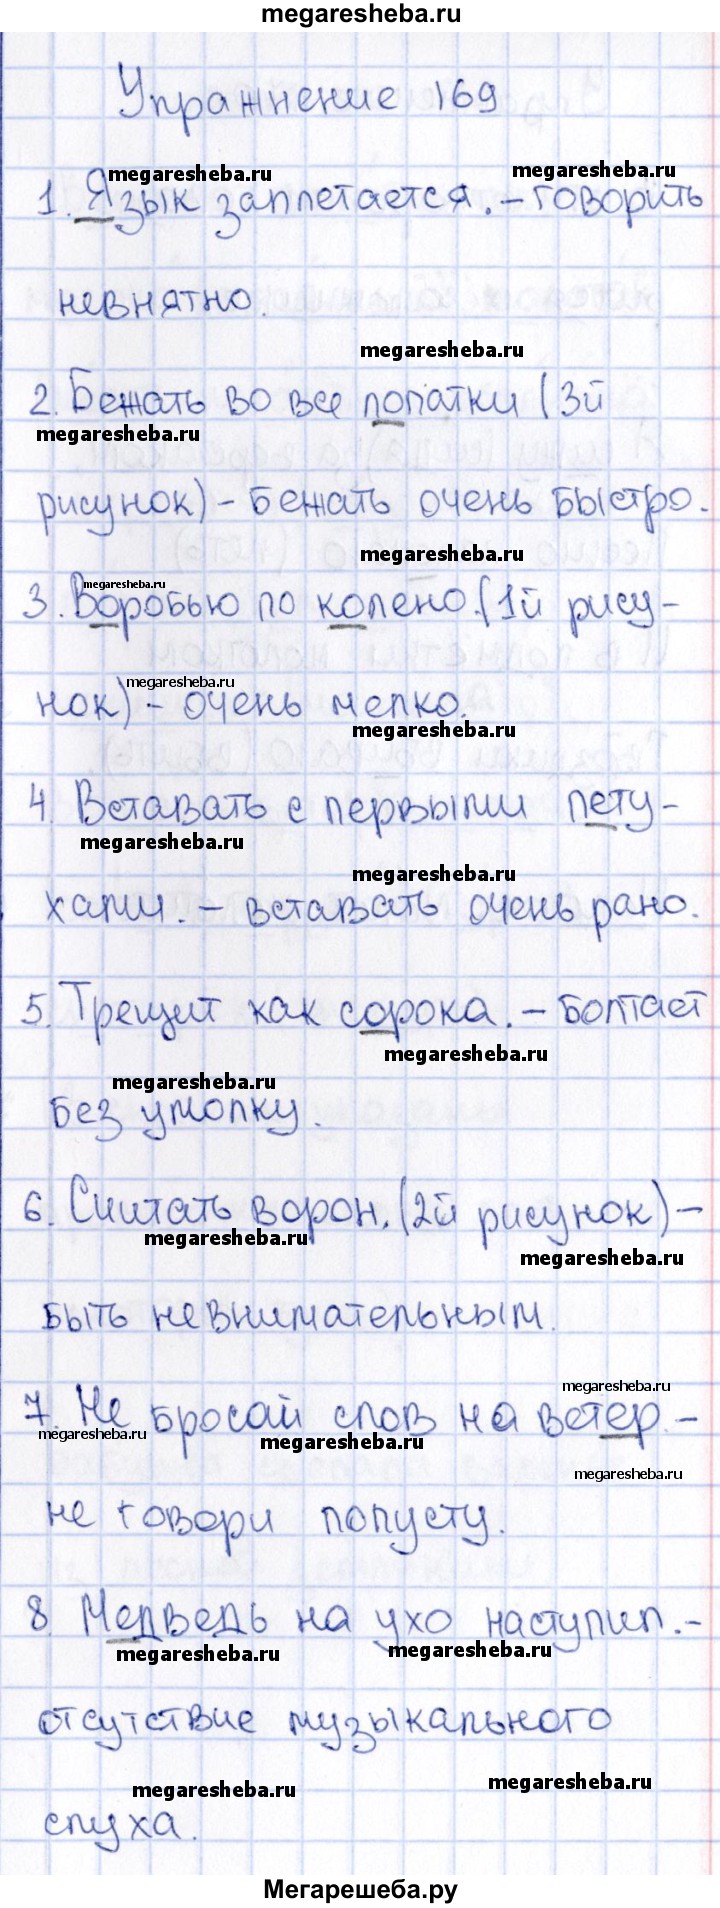 megaresheba.ru
Упражнение 169
megaresheba.ru
megaresheba.ru
1. Язык заплетается. – говорить
невнятно.
megaresheba.ru
2. Бежать во все лопатки (3й
megaresheba.ru
рисунок) – бежать очень быстро.
megaresheba.ru
megaresheba.ru
3. Воробью по колено. (1й рису-
megaresheba.ru
нок) – очень мелко.
megaresheba.ru
4. Вставать с первыми пету-
megaresheba.ru
megaresheba.ru
хами. – вставать очень рано.
5. Трещит как сорока. – болтает
megaresheba.ru
megaresheba.ru
без умолку.
6. Считать ворон. (2й рисунок) –
megaresheba.ru
megaresheba.ru
быть невнимательным.
megaresheba.ru
7. Не бросай слов на ветер. –
megaresheba.ru
megaresheba.ru
megaresheba.ru
не говори попусту.
8. Медведь на ухо наступил. –
megaresheba.ru
megaresheba.ru
отсутствие музыкального
megaresheba.ru
megaresheba.ru
слуха.
Мегарешеба.ру